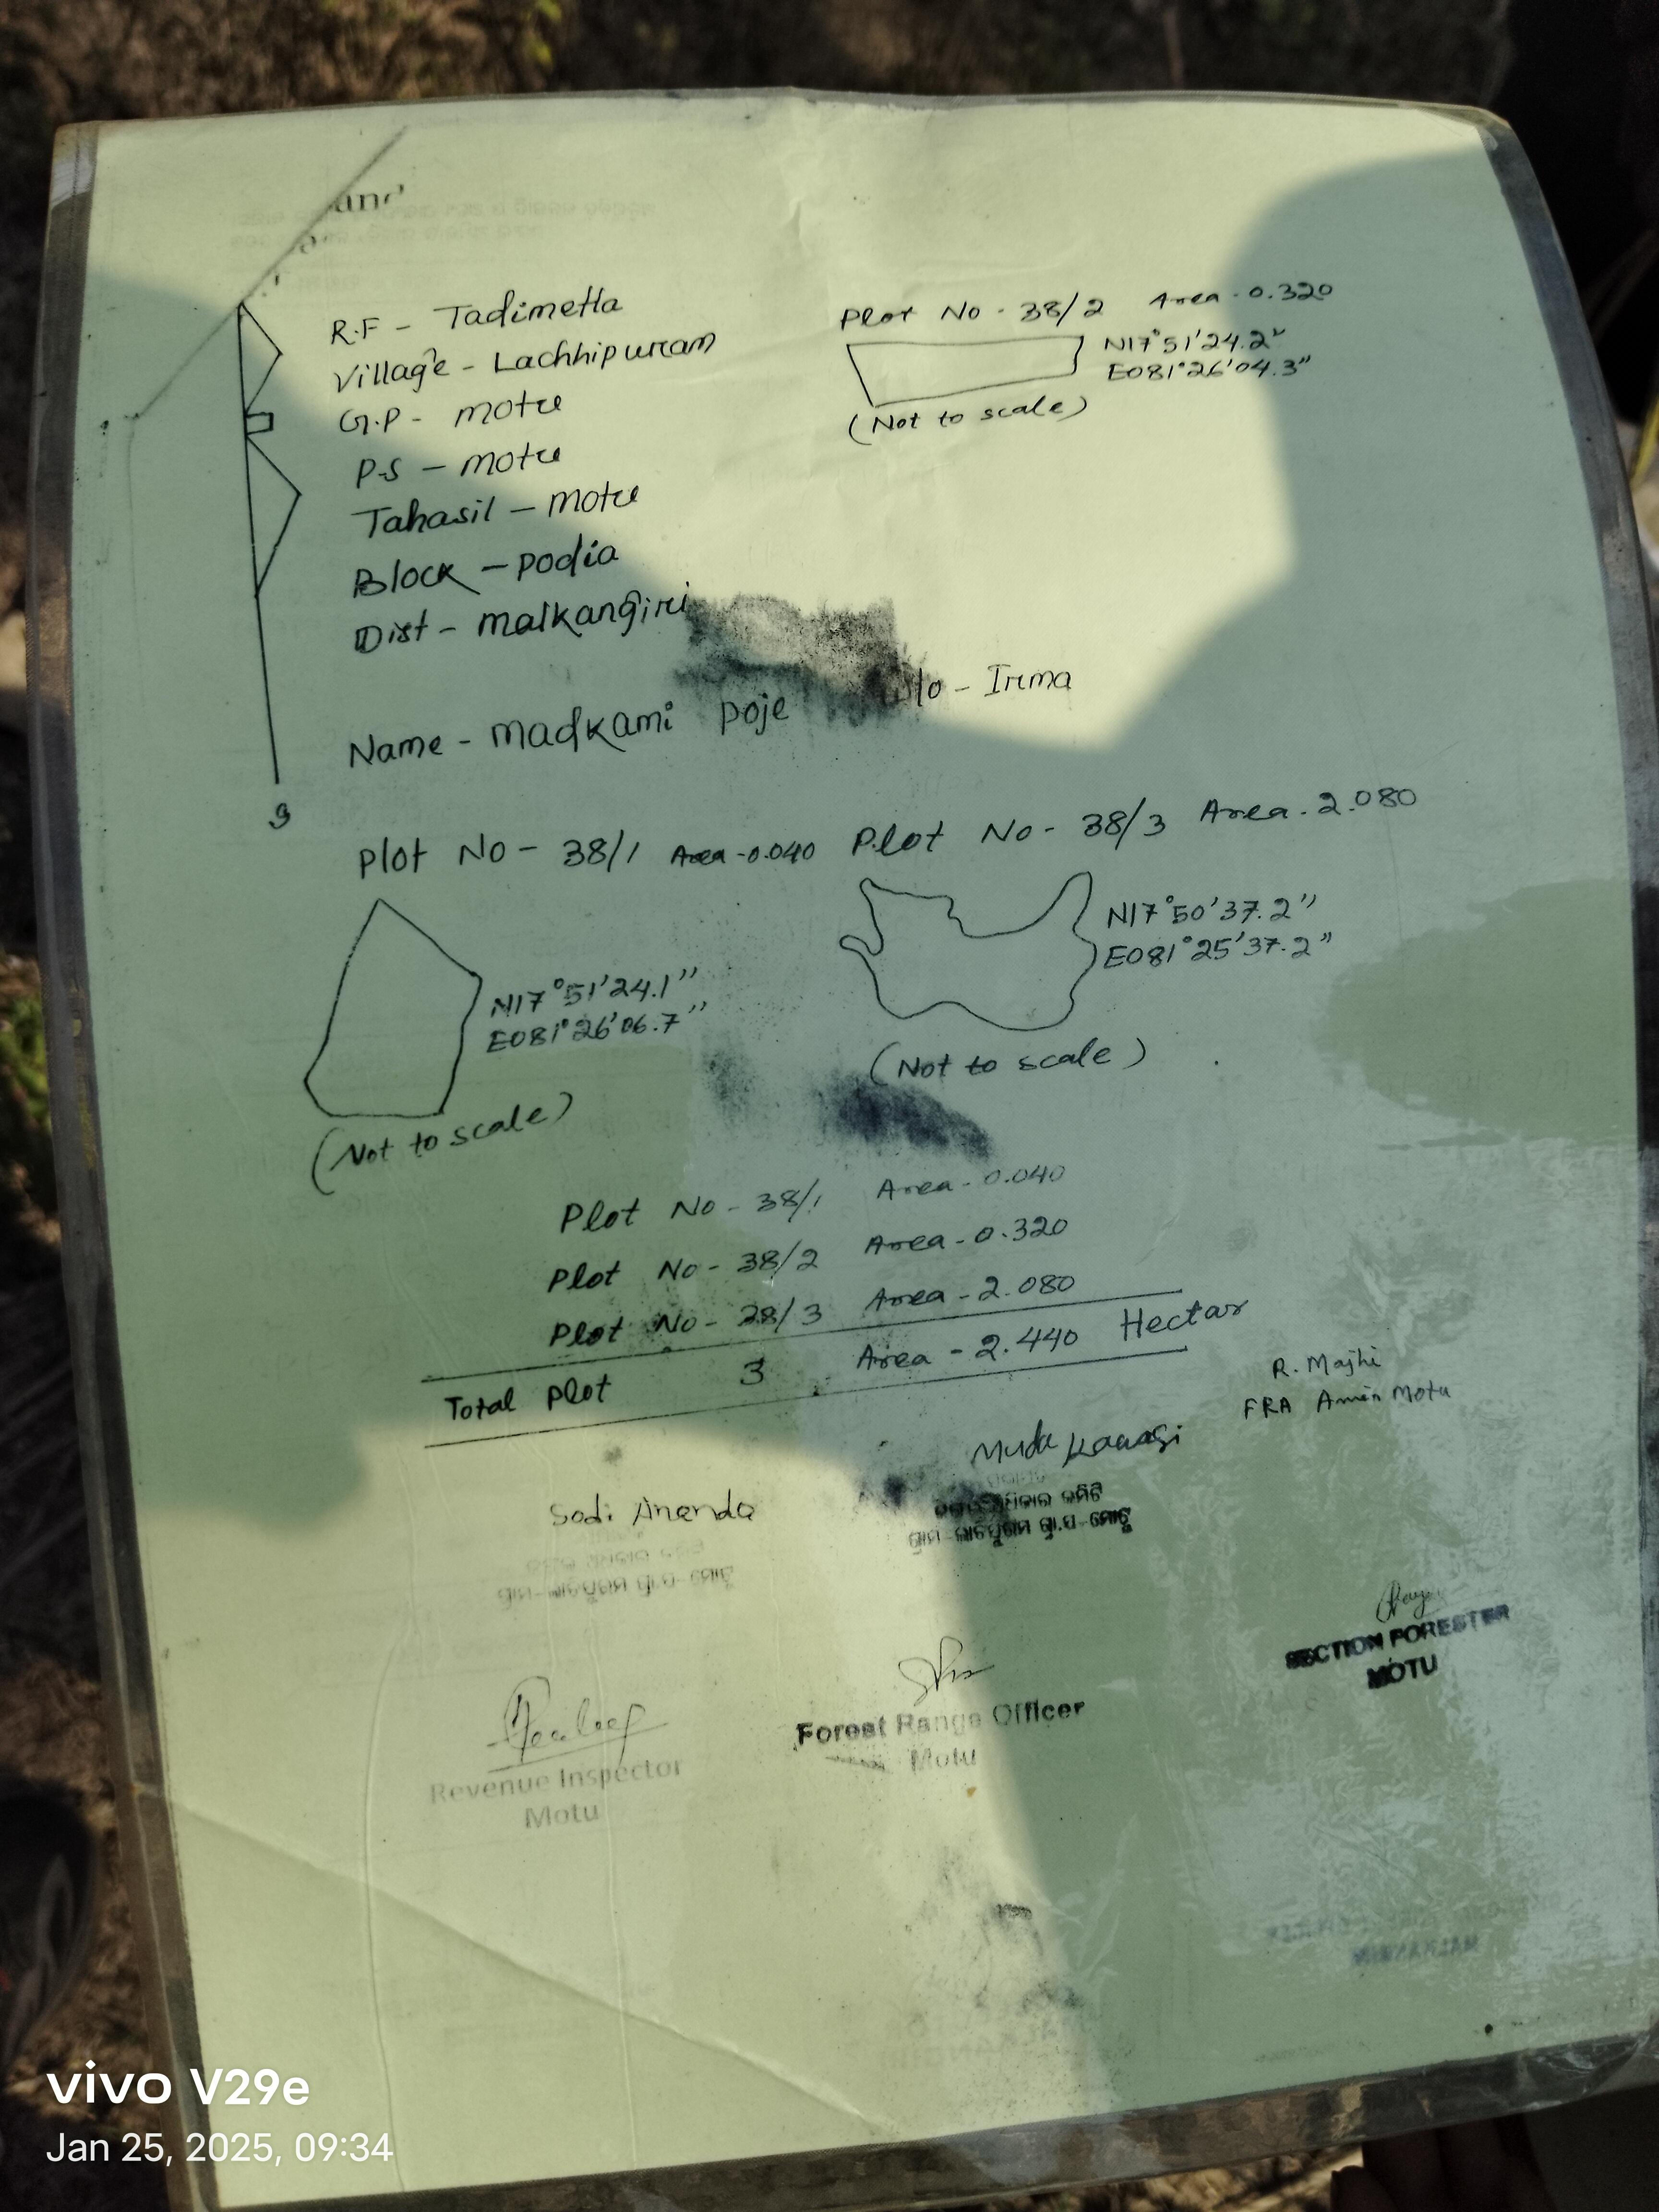 R.F - Tadimetla
Village - Lachhipuram
G.P - motu
P.S - motu
Tahasil - motu
Block - Podia
Dist - malkangiri
Plot No - 38/2 Area - 0.320
N17°51'24.2"
E081°26'04.3"
(Not to scale)
Name - madkami poje /o - Irma
Plot No - 38/1 Area - 0.040
N17°51'24.1"
E081°26'06.7"
(Not to scale)
Plot No - 38/3 Area - 2.080
N17°50'37.2"
E081°25'37.2"
(Not to scale)
Plot No - 38/1 Area - 0.040
Plot No - 38/2 Area - 0.320
Plot No - 38/3 Area - 2.080
Total Plot 3 Area - 2.440 Hectar
R. Majhi
FRA Amin Motu
Muda
Sodi Ananda
SECTION FORESTER
MOTU
Forest Range Officer
Motu
Revenue Inspector
Motu
vivo V29e
Jan 25, 2025, 09:34